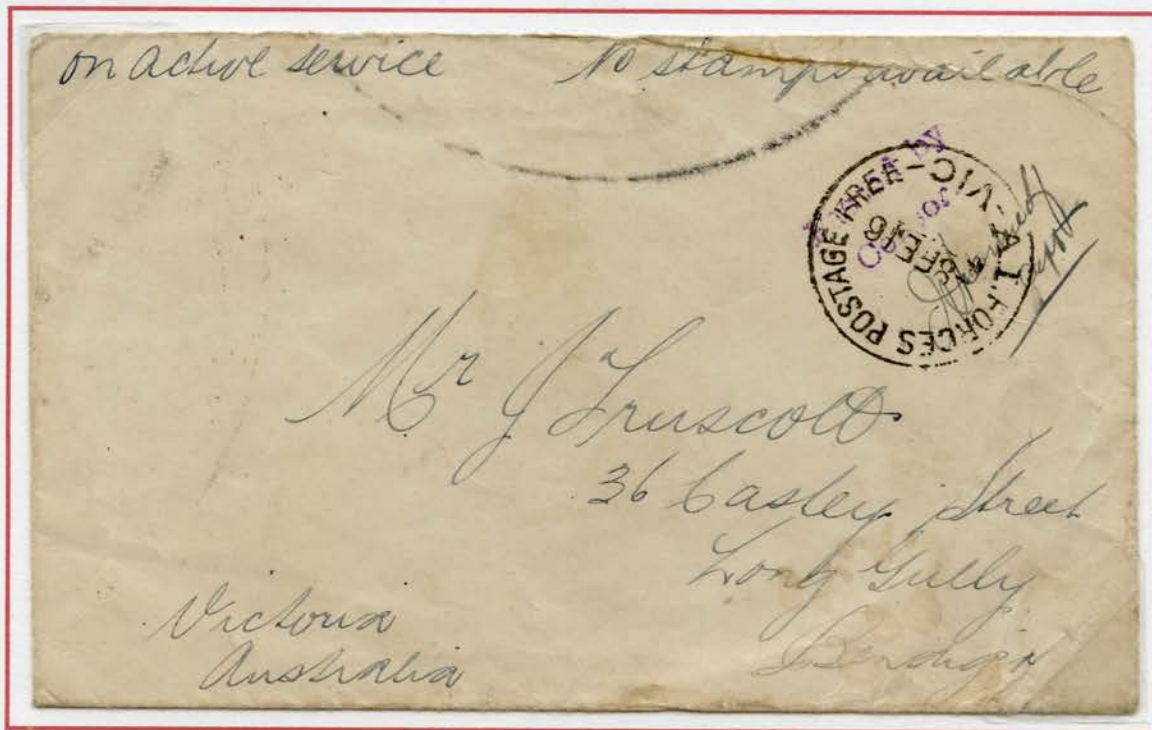 on active service No stamps available
Passed by
Censor
A.I. FORCES POSTAGE FREE - VIC -
SE 16
Depot
Mr J Truscott
36 Casley Street
Long Gully
Bendigo
Victoria
Australia